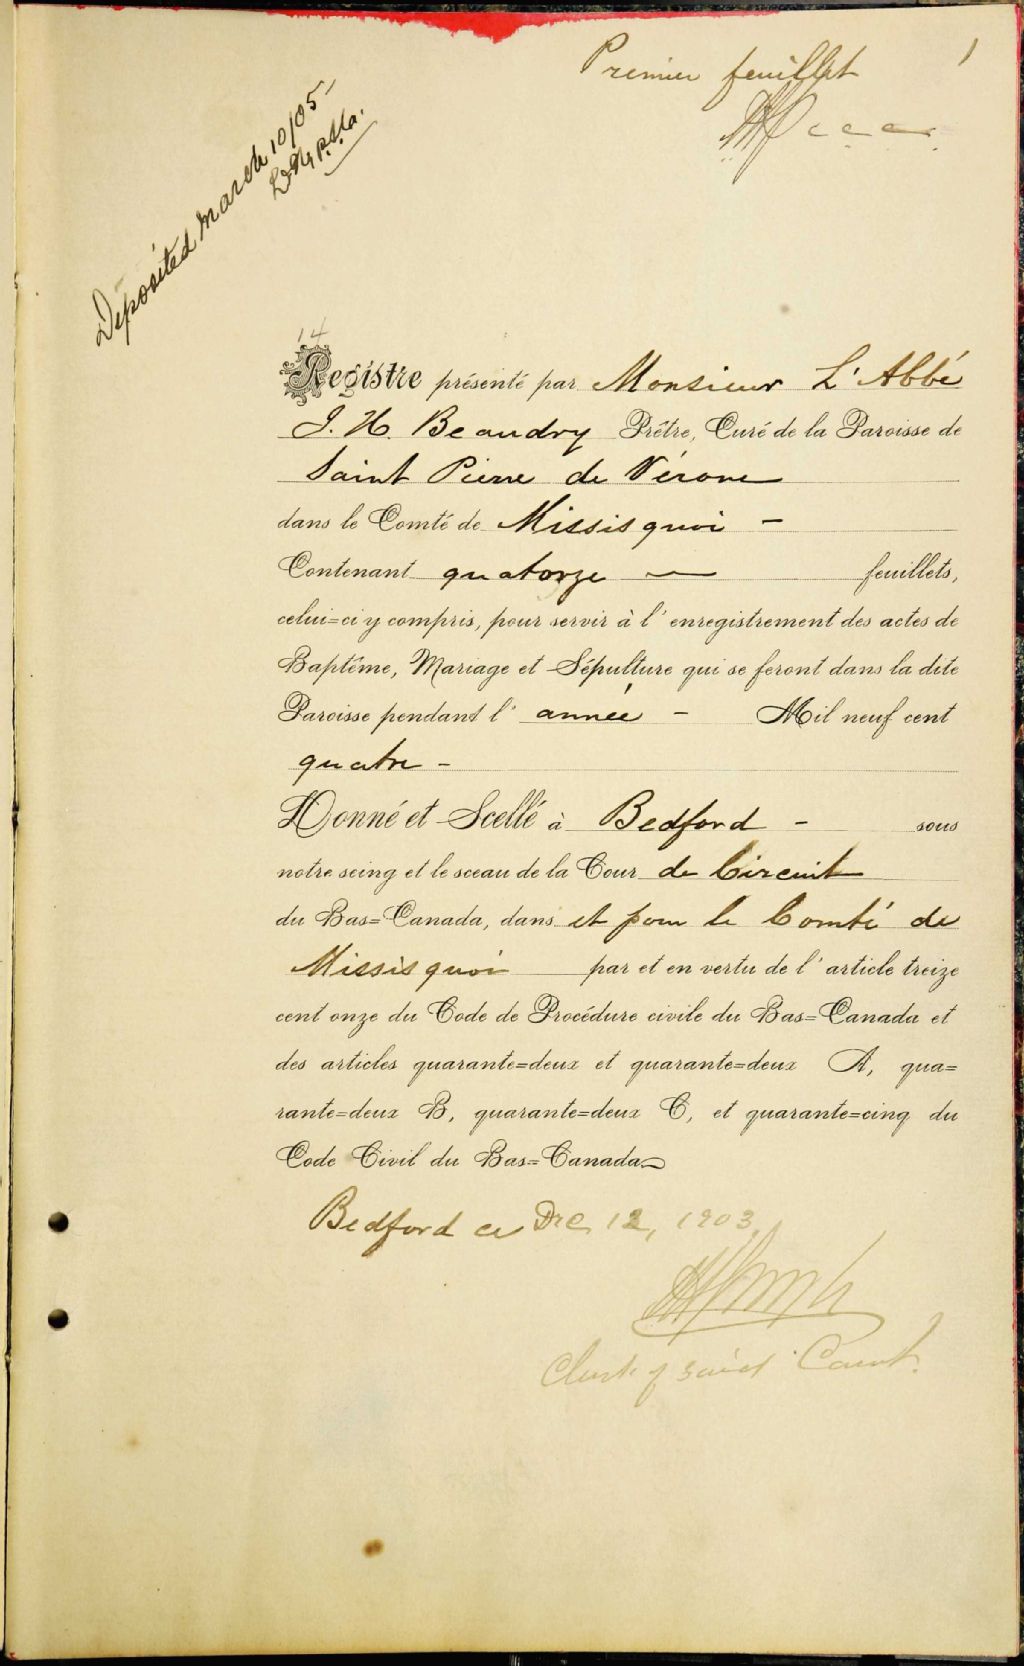 Premier feuillet
1
c c c
Deposited March 10/05
14
Registre présenté par Monsieur L'Abbé
J. H. Beaudry Prêtre, Curé de la Paroisse de
Saint Pierre de Vérone
dans le Comté de Missisquoi -
Contenant quatorze — feuillets,
celui=ci y compris, pour servir à l'enregistrement des actes de
Baptême, Mariage et Sépulture qui se feront dans la dite
Paroisse pendant l'année - Mil neuf cent
quatre -
Donné et Scellé à Bedford - sous
notre seing et le sceau de la Cour de Circuit
du Bas=Canada, dans et pour le Comté de
Missisquoi par et en vertu de l'article treize
cent onze du Code de Procédure civile du Bas=Canada et
des articles quarante=deux et quarante=deux A, qua=
rante=deux B, quarante=deux C, et quarante=cinq du
Code Civil du Bas=Canada
Bedford ce Dec 12, 1903
Clerk of said Court.